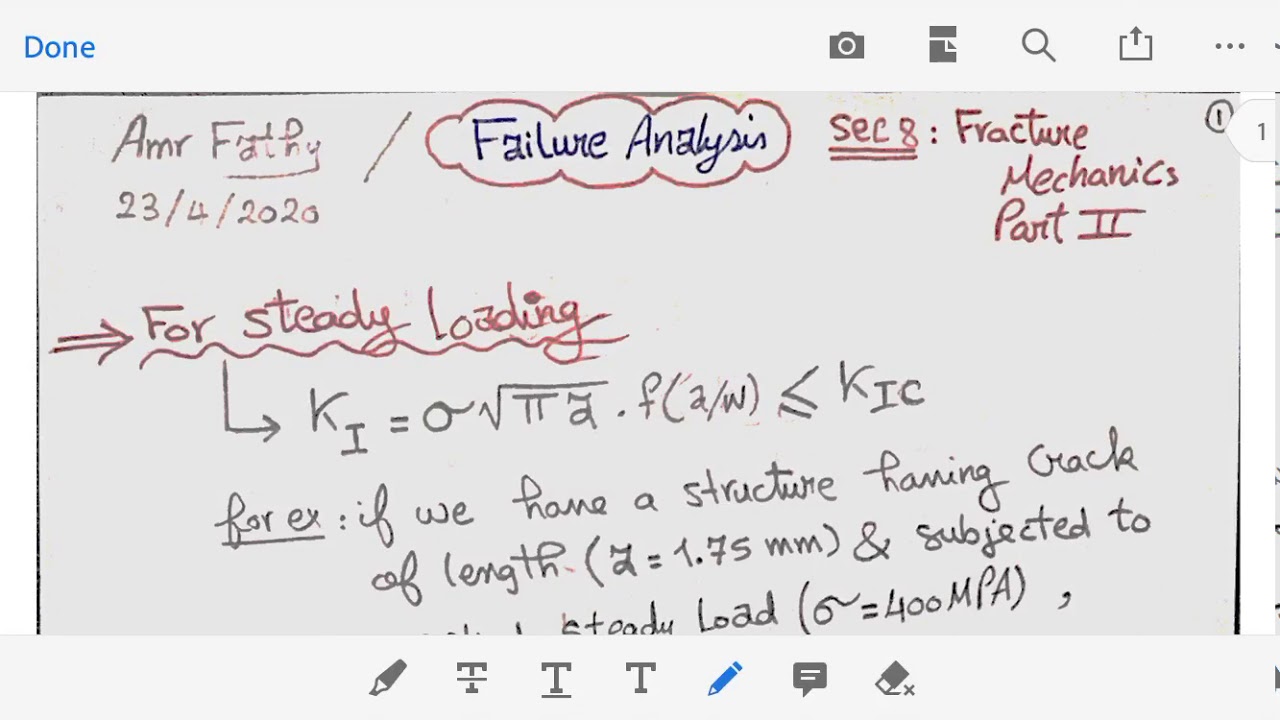 Done
Amr Fathy / Failure Analysis sec 8 : Fracture ①
1
Mechanics
23/4/2020
Part II
⇒ For steady loading
↳ K_I = σ√πa . f(a/w) ≤ K_IC
for ex : if we have a structure having crack
of length (a = 1.75 mm) & subjected to
steady Load (σ = 400 MPA) ,
T T T